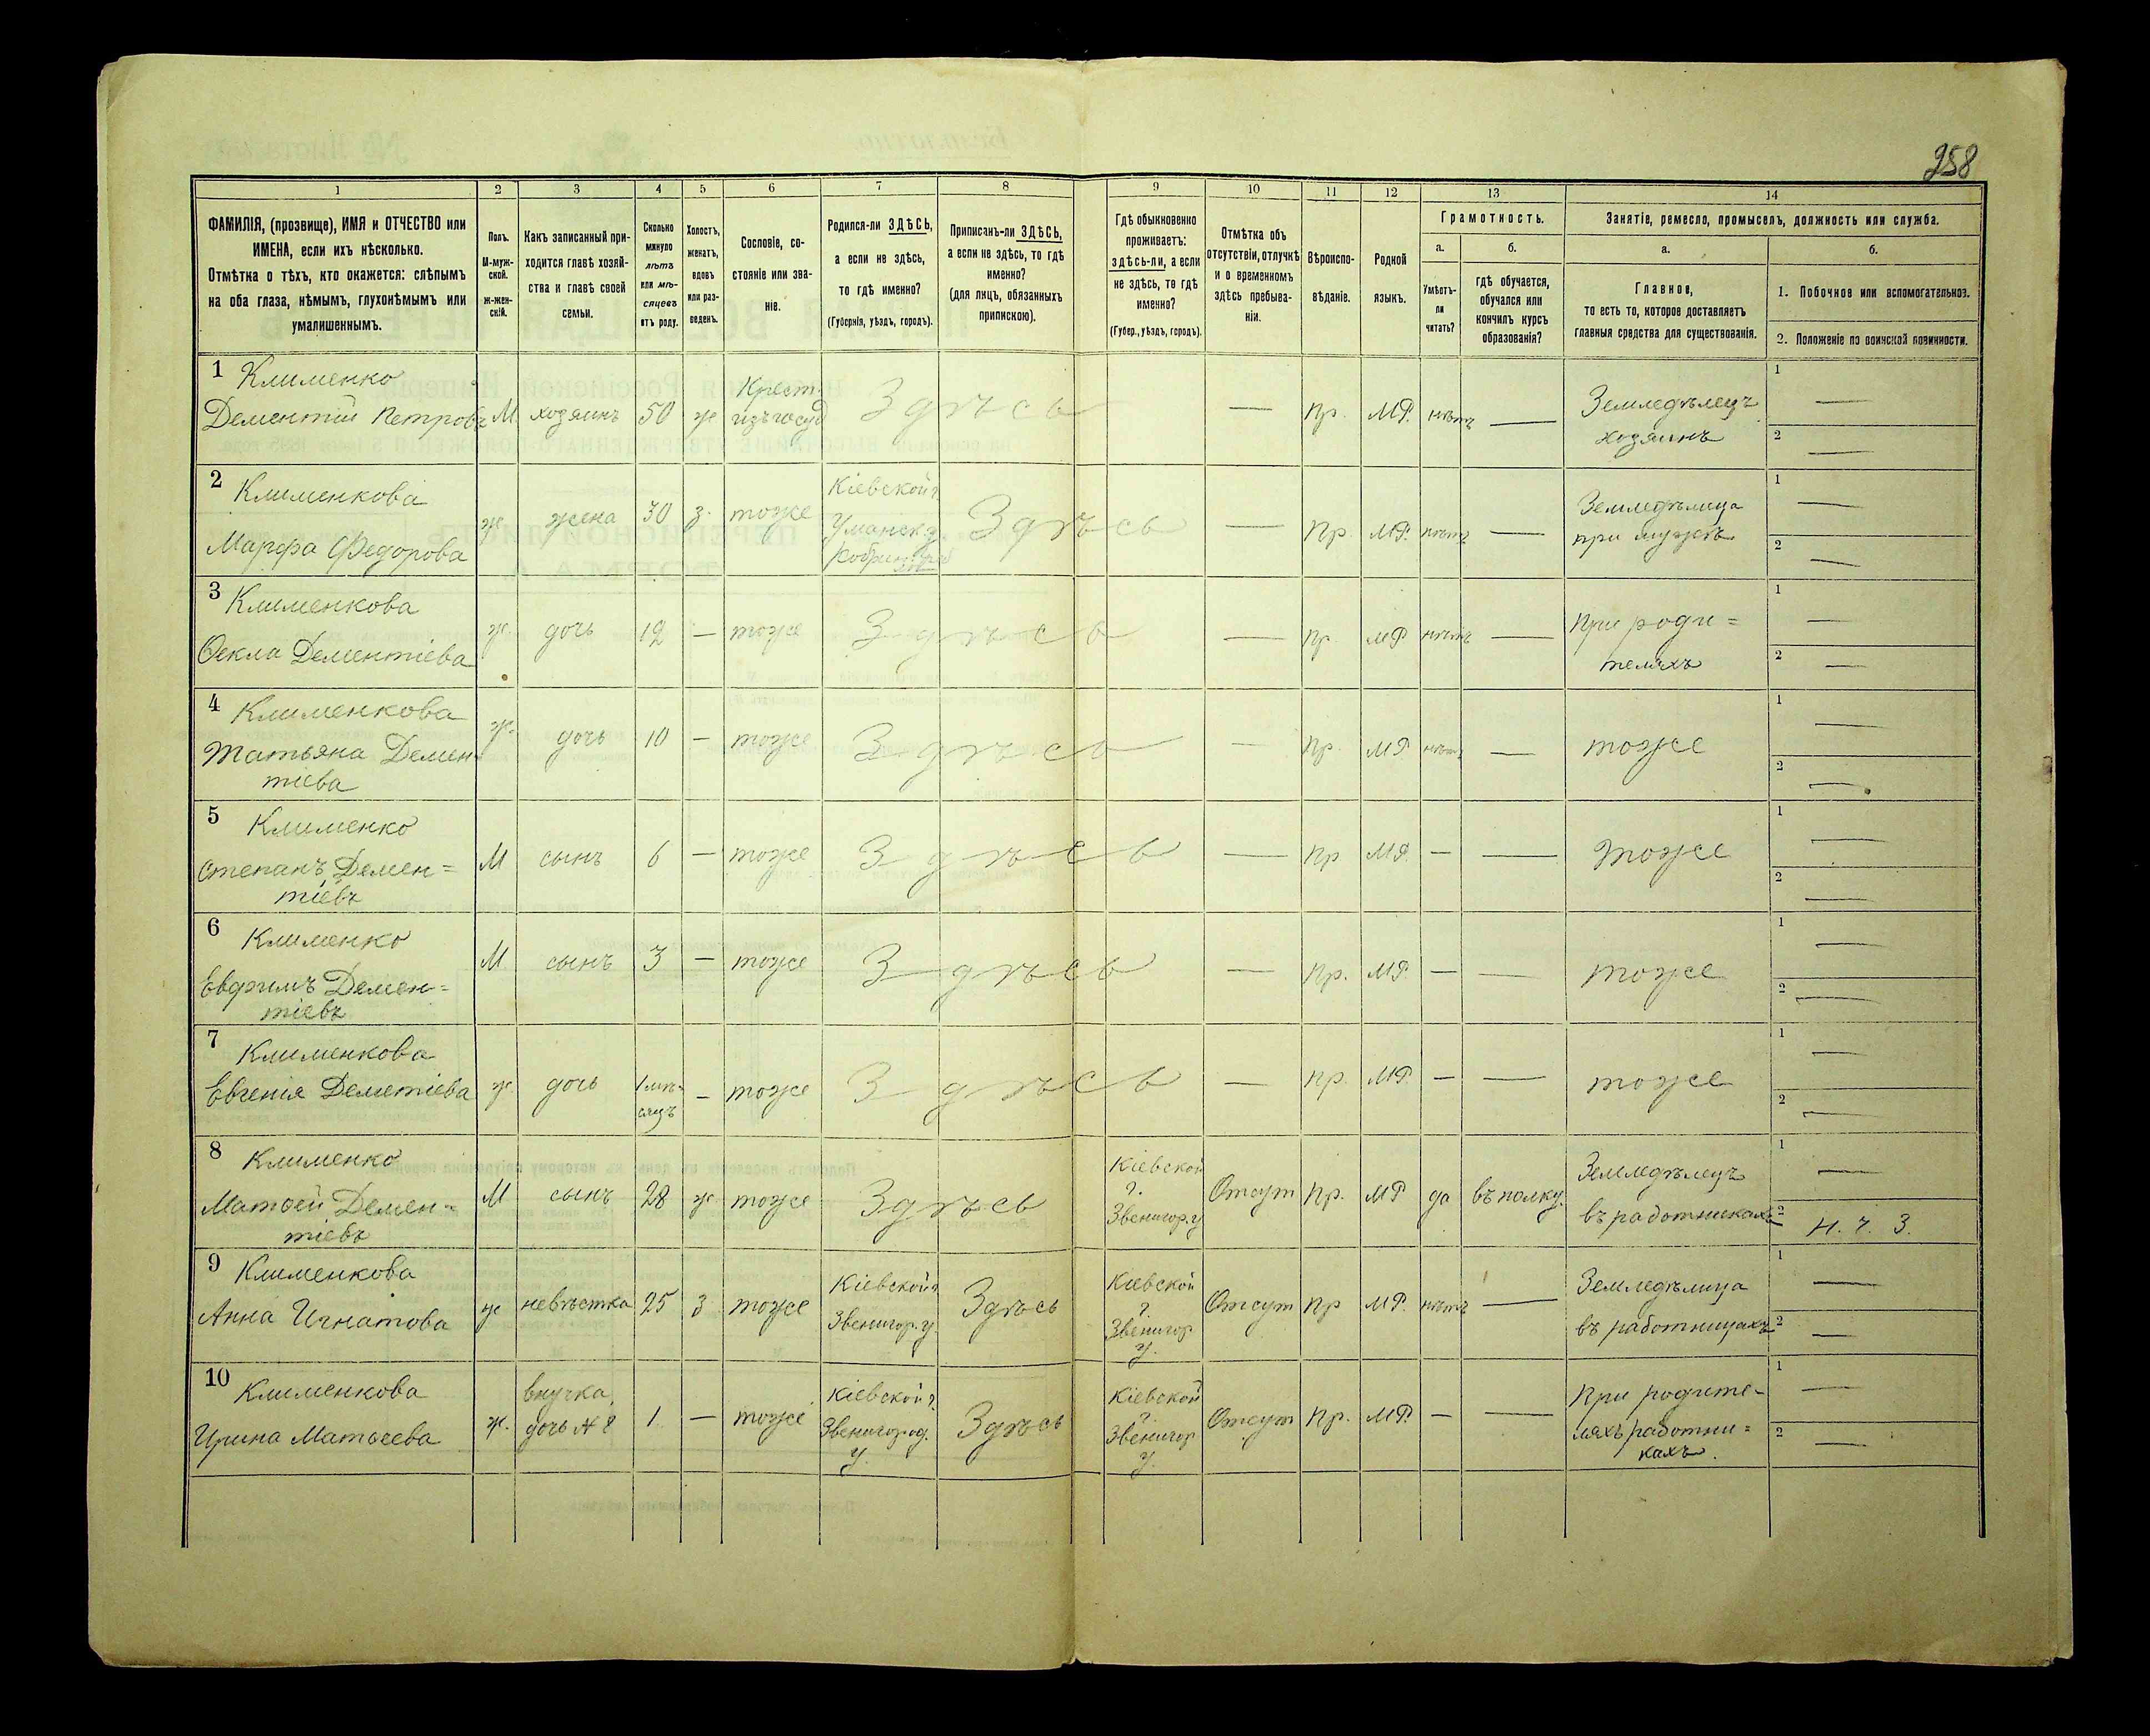 258
1 2 3 4 5 6 7 8 9 10 11 12 13 14
ФАМИЛІЯ, (прозвище), ИМЯ и ОТЧЕСТВО или
ИМЕНА, если ихъ нѣсколько.
Отмѣтка о тѣхъ, кто окажется: слѣпымъ
на оба глаза, нѣмымъ, глухонѣмымъ или
умалишеннымъ.
Полъ.
М-муж-
ской.
ж-жен-
скій.
Какъ записанный при-
ходится главѣ хозяй-
ства и главѣ своей
семьи.
Сколько
минуло
лѣтъ
или мѣ-
сяцевъ
отъ роду.
Холостъ,
женатъ,
вдовъ
или раз-
веденъ.
Сословіе, со-
стояніе или зва-
ніе.
Родился-ли ЗДѢСЬ,
а если не здѣсь,
то гдѣ именно?
(Губернія, уѣздъ, городъ).
Приписанъ-ли ЗДѢСЬ,
а если не здѣсь, то гдѣ
именно?
(для лицъ, обязанныхъ
припискою).
Гдѣ обыкновенно
проживаетъ:
здѣсь-ли, а если
не здѣсь, то гдѣ
именно?
(Губер., уѣздъ, городъ).
Отмѣтка объ
отсутствіи, отлучкѣ
и о временномъ
здѣсь пребыва-
ніи.
Вѣроиспо-
вѣданіе.
Родной
языкъ.
Грамотность.
а.
Умѣетъ-
ли
читать?
б.
гдѣ обучается,
обучался или
кончилъ курсъ
образованія?
Занятіе, ремесло, промыселъ, должность или служба.
а.
Главное,
то есть то, которое доставляетъ
главныя средства для существованія.
б.
1. Побочное или вспомогательное.
2. Положеніе по воинской повинности.
1 Клименко
Дементій Петровъ М. хозяинъ 50 ж Крест. изъ госуд Здѣсь — пр. МР. нѣтъ — Земледѣлецъ
хозяинъ
1 —
2 —
2 Клименкова
Марфа Федорова ж жена 30 з. тоже Кіевской г. Уманск. у. Здѣсь — Пр. МР. нѣтъ — Земледѣлица
при мужѣ
1 —
2 —
3 Клименкова
Ѳекла Дементіева ж. дочь 12 — тоже Здѣсь — пр МР нѣтъ — При роди=
теляхъ
1 —
2 —
4 Клименкова
Татьяна Демен-
тіева ж. дочь 10 — тоже Здѣсь — пр. МР нѣтъ — тоже
1 —
2 —
5 Клименко
Степанъ Демен=
тіевъ М сынъ 6 — тоже Здѣсь — пр МР. — — тоже
1 —
2 —
6 Клименко
Евфимъ Демен=
тіевъ М. сынъ 3 — тоже Здѣсь — пр. МР. — — тоже
1 —
2 —
7 Клименкова
Евгенія Деметіева ж дочь 1 мѣ-
сяцъ — тоже Здѣсь — пр. МР. — — тоже
1 —
2 —
8 Клименко
Матѳей Демен=
тіевъ М сынъ 28 ж. тоже Здѣсь Кіевской
г.
Звенигор. у Отсут пр. МР да въ полку Земледѣлецъ
въ работникахъ
1 —
2 Н. ч. З.
9 Клименкова
Анна Игнатова ж невѣстка 25 з тоже Кіевской г.
Звенигор. у. Здѣсь Кіевской
г.
Звенигор
у. Отсут пр МР. нѣтъ — Земледѣлица
въ работницахъ
1 —
2 —
10 Клименкова
Ирина Матѳеева ж. внучка
дочь № 8 1. — тоже Кіевской г.
Звенигород.
у. Здѣсь Кіевской
г.
Звенигор
у. Отсут пр. МР. — — При родите-
ляхъ работни=
кахъ.
1 —
2 —